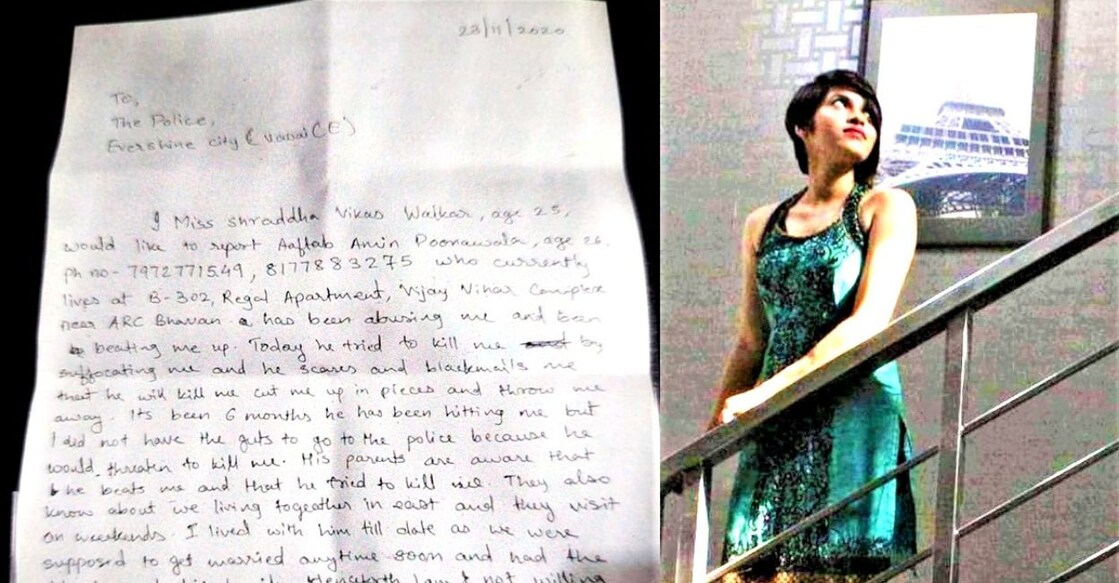 23/11/2020
To,
The Police,
Evershine city (Vasai (E)
I Miss Shraddha Vikas Walkar, age 25,
would like to report Aaftab Amin Poonawala, age 26.
ph no- 7972771549, 8177883275 who currently
lives at B-302, Regal Apartment, Vijay Vihar Complex
near ARC Bhavan. has been abusing me and been
beating me up. Today he tried to kill me by
suffocating me and he scares and blackmails me
that he will kill me cut me up in pieces and throw me
away. Its been 6 months he has been hitting me but
I did not have the guts to go to the police because he
would threaten to kill me. His parents are aware that
he beats me and that he tried to kill me. They also
know about we living togeether in east and they visit
on weekends. I lived with him till date as we were
supposed to get married anytime soon and had the
not willing